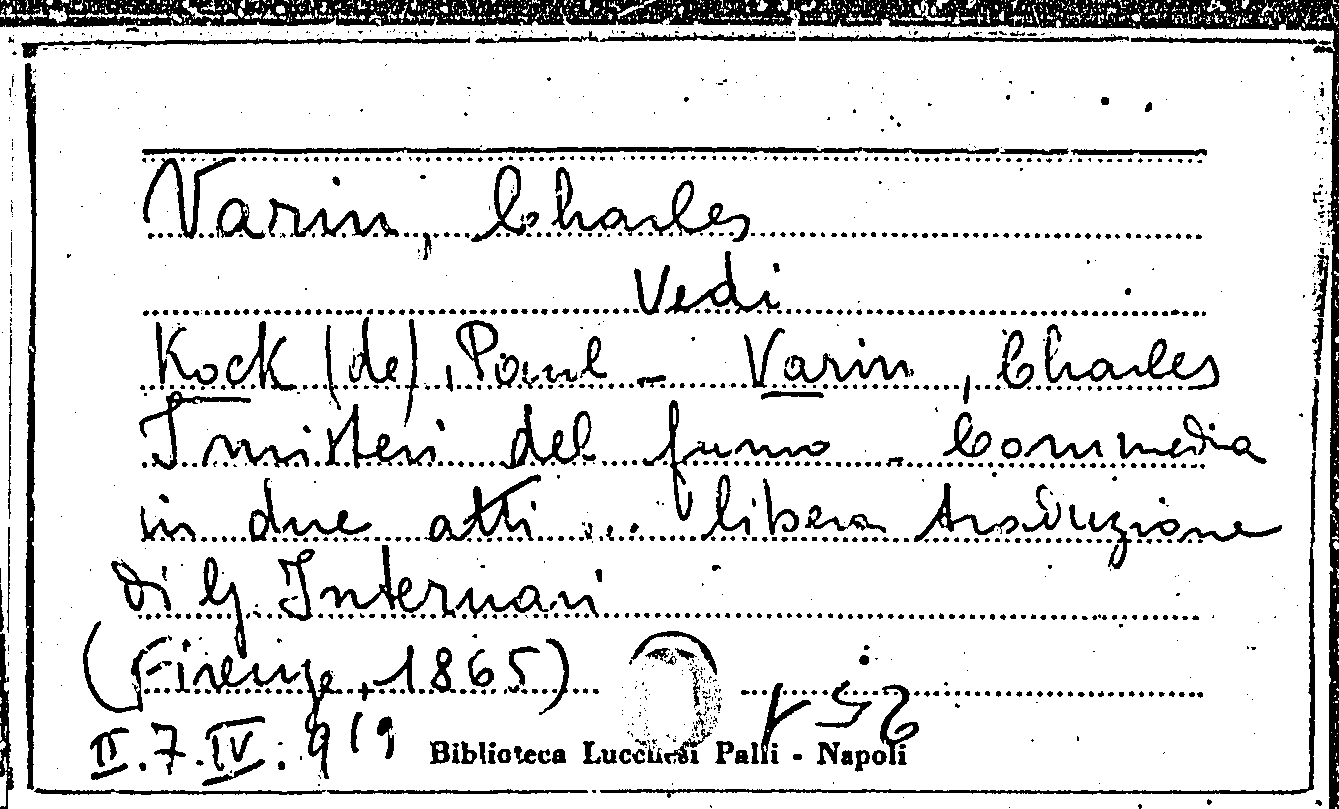 Varin, Charles
Vedi
Kock (de), Paul - Varin, Charles
I misteri del fumo - Commedia
in due atti ... libera traduzione
di G. Internari
(Firenze, 1865)
II.7.IV.9(9
Biblioteca Lucchesi Palli - Napoli